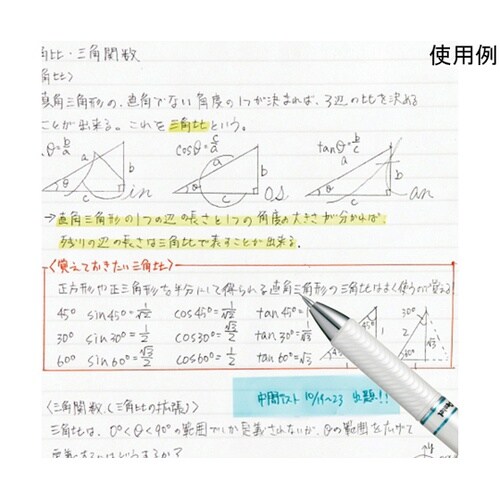 使用例
角比・三角関数
角比〉
直角三角形の、直角でない角度の1つが決まれば、3辺の比を決める
ことが出来る。これを三角比という。
sinθ=b/a cosθ=c/a tanθ=b/c
a b c θ in a b c θ os a b c θ an
→直角三角形の1つの辺の長さと1つの角度の大きさが分かれば、
残りの辺の長さは三角比で表すことが出来る.
〈覚えておきたい三角比〉
正方形や正三角形を半分にして得られる直角三角形の三角比はよく使うので覚える!
45° sin45°=1/√2 cos45°=1/√2 tan45°=1
30° sin30°=1/2 cos30°=√3/2 tan30°=1/√3
60° sin60°=√3/2 cos60°=1/2 tan60°=√3
45° 30° 2 √3
中間テスト 10/19~23 出題!!
〈三角関数、(三角比の拡張)〉
三角比は、0°<θ<90°の範囲でしか定義されないが、θの範囲を広げて
定義するにはどうするか?